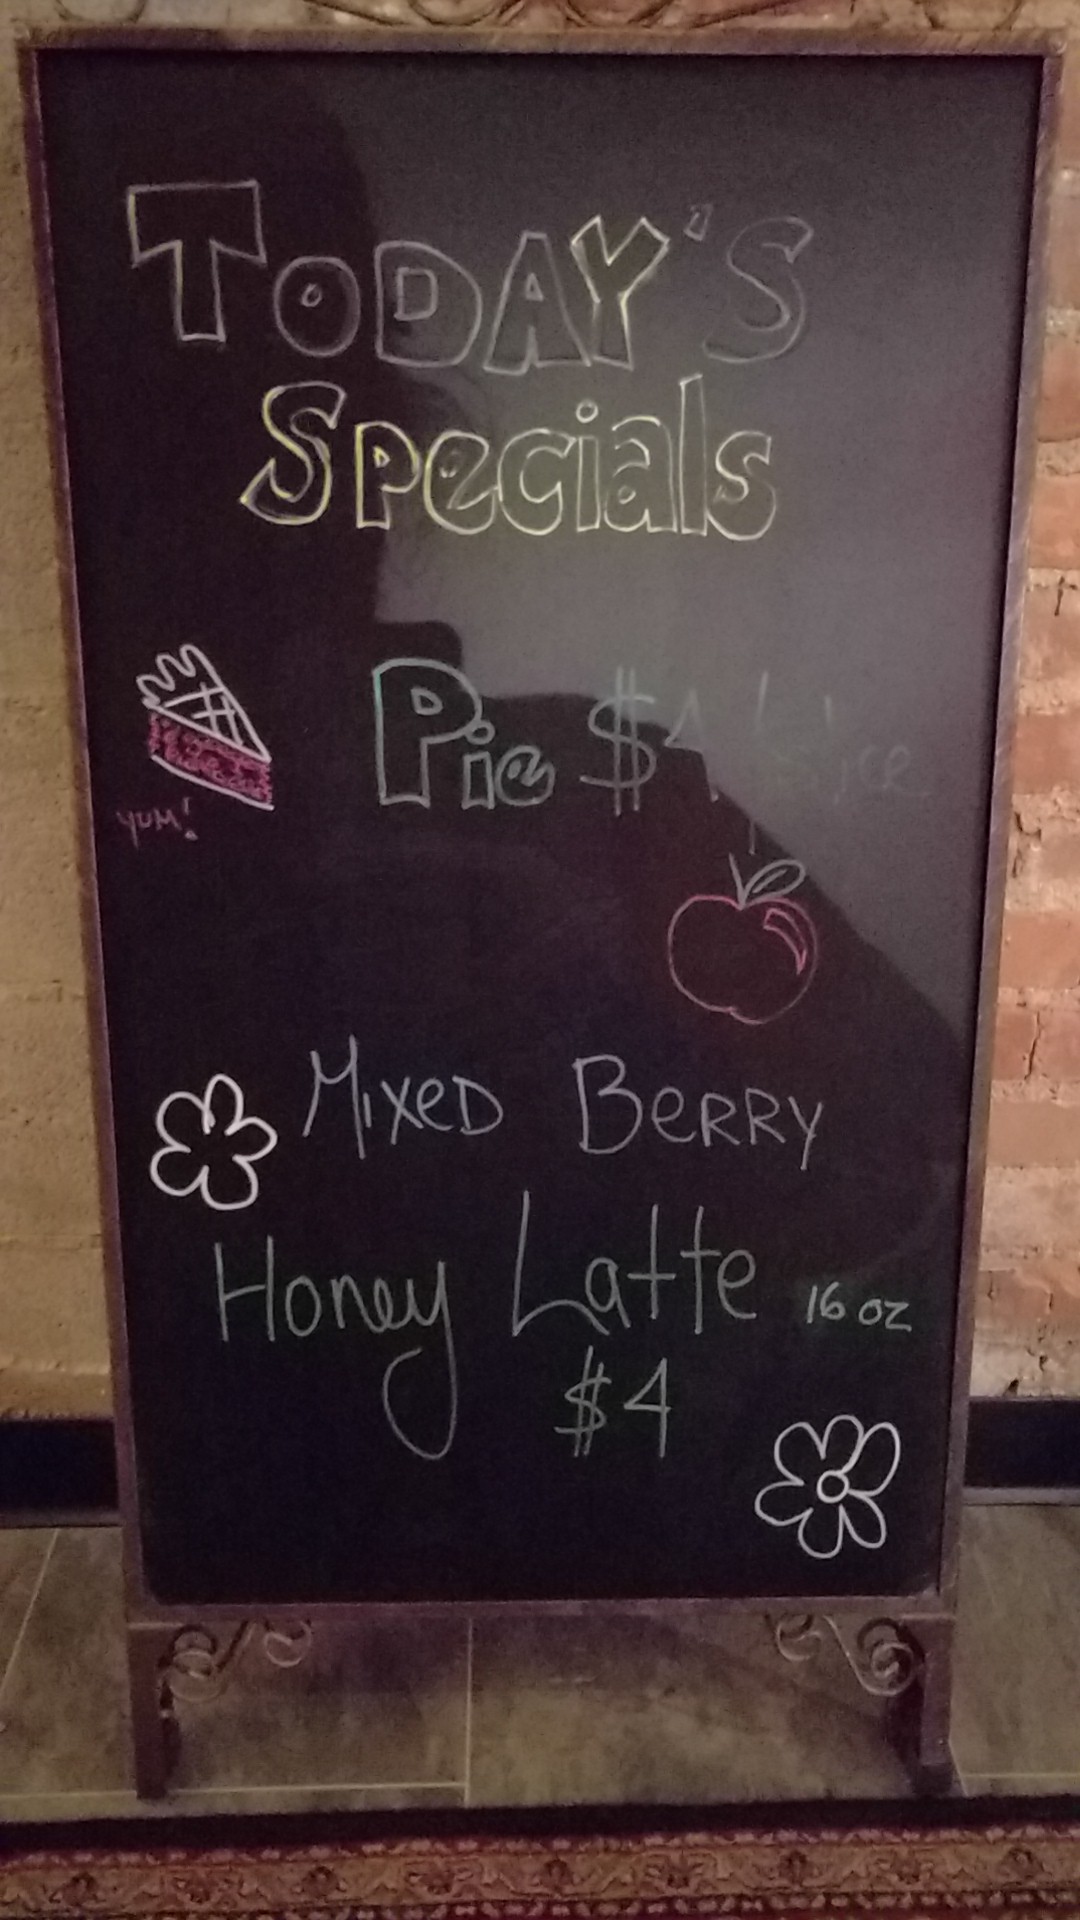 TODAY'S
Specials
Pie $4
YUM!
MIXED BERRY
Honey Latte 16 oz
$4